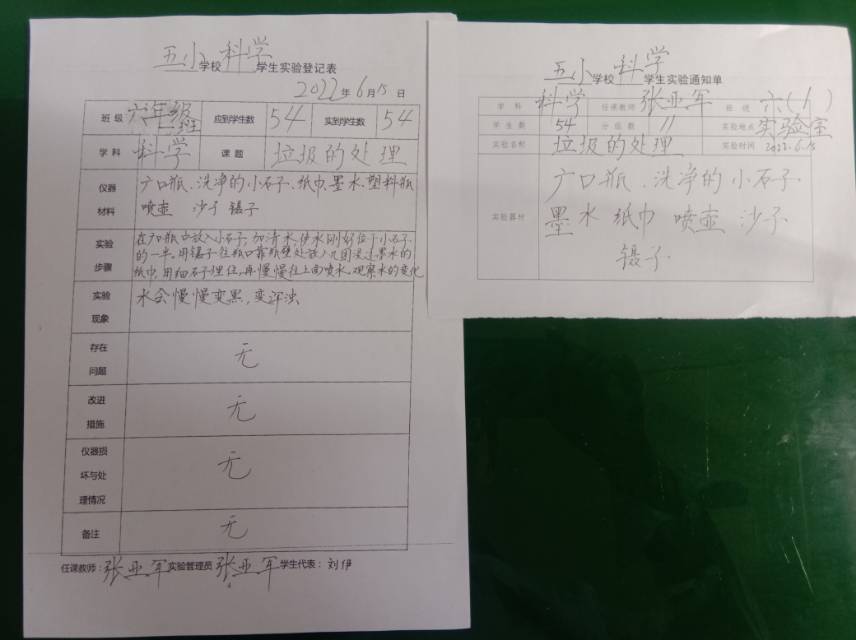 五小学校科学学生实验登记表
2022年6月15日
班级 六年级一班 应到学生数 54 实到学生数 54
学科 科学 课题 垃圾的处理
仪器材料 广口瓶、洗净的小石子、纸巾、墨水、塑料瓶
喷壶 沙子 镊子
实验步骤 在广口瓶中放入小石子,加清水,使水刚好位于小石子
的一半,用镊子往瓶口靠瓶壁处放入几团浸过墨水的
纸巾,用细石子埋住,再慢慢往上面喷水,观察水的变化
实验现象 水会慢慢变黑,变浑浊
存在问题 无
改进措施 无
仪器损坏与处理情况 无
备注 无
任课教师:张亚军 实验管理员 张亚军 学生代表:刘伊
五小学校科学学生实验通知单
学科 科学 任课教师 张亚军 班级 六(1)
学生数 54 分组数 11 实验地点 实验室
实验名称 垃圾的处理 实验时间 2022.6.15
实验器材 广口瓶、洗净的小石子.
墨水 纸巾 喷壶 沙子
镊子.